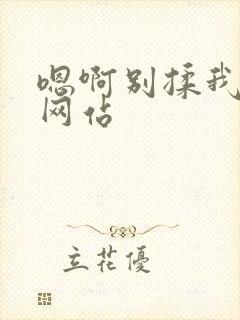 嗯啊别揉我
网占
立花優